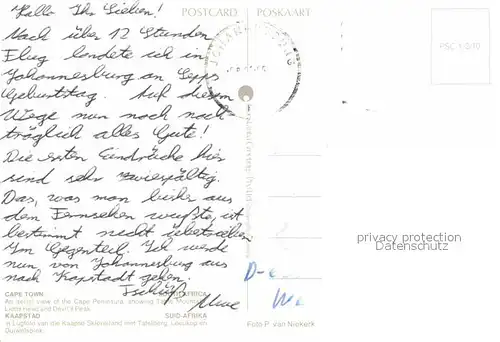 Hallo Ihr Lieben!
Nach über 12 Stunden
Flug landete ich in
Johannesburg an Sepps
Geburtstag. Auf diesem
Wege nun noch nach-
träglich alles Gute!
Die ersten Eindrücke hier
sind sehr zwiespältig.
Das, was man bisher aus
dem Fernsehen wußte, ist
bestimmt nicht übertrieben.
Im Gegenteil. Ich werde
nun von Johannesburg aus
nach Kapstadt gehen.
Tschüß
Uwe
POSTCARD POSKAART
JOHANNESBURG
CAPE TOWN SOUTH AFRICA
An aerial view of the Cape Peninsula, showing Table Mountain,
Lions Head and Devil's Peak.
KAAPSTAD SUID-AFRIKA
'n Lugfoto van die Kaapse Skiereiland met Tafelberg, Leeukop en
Duiwelskop.
Foto P. van Niekerk
D-
privacy protection
Datenschutz